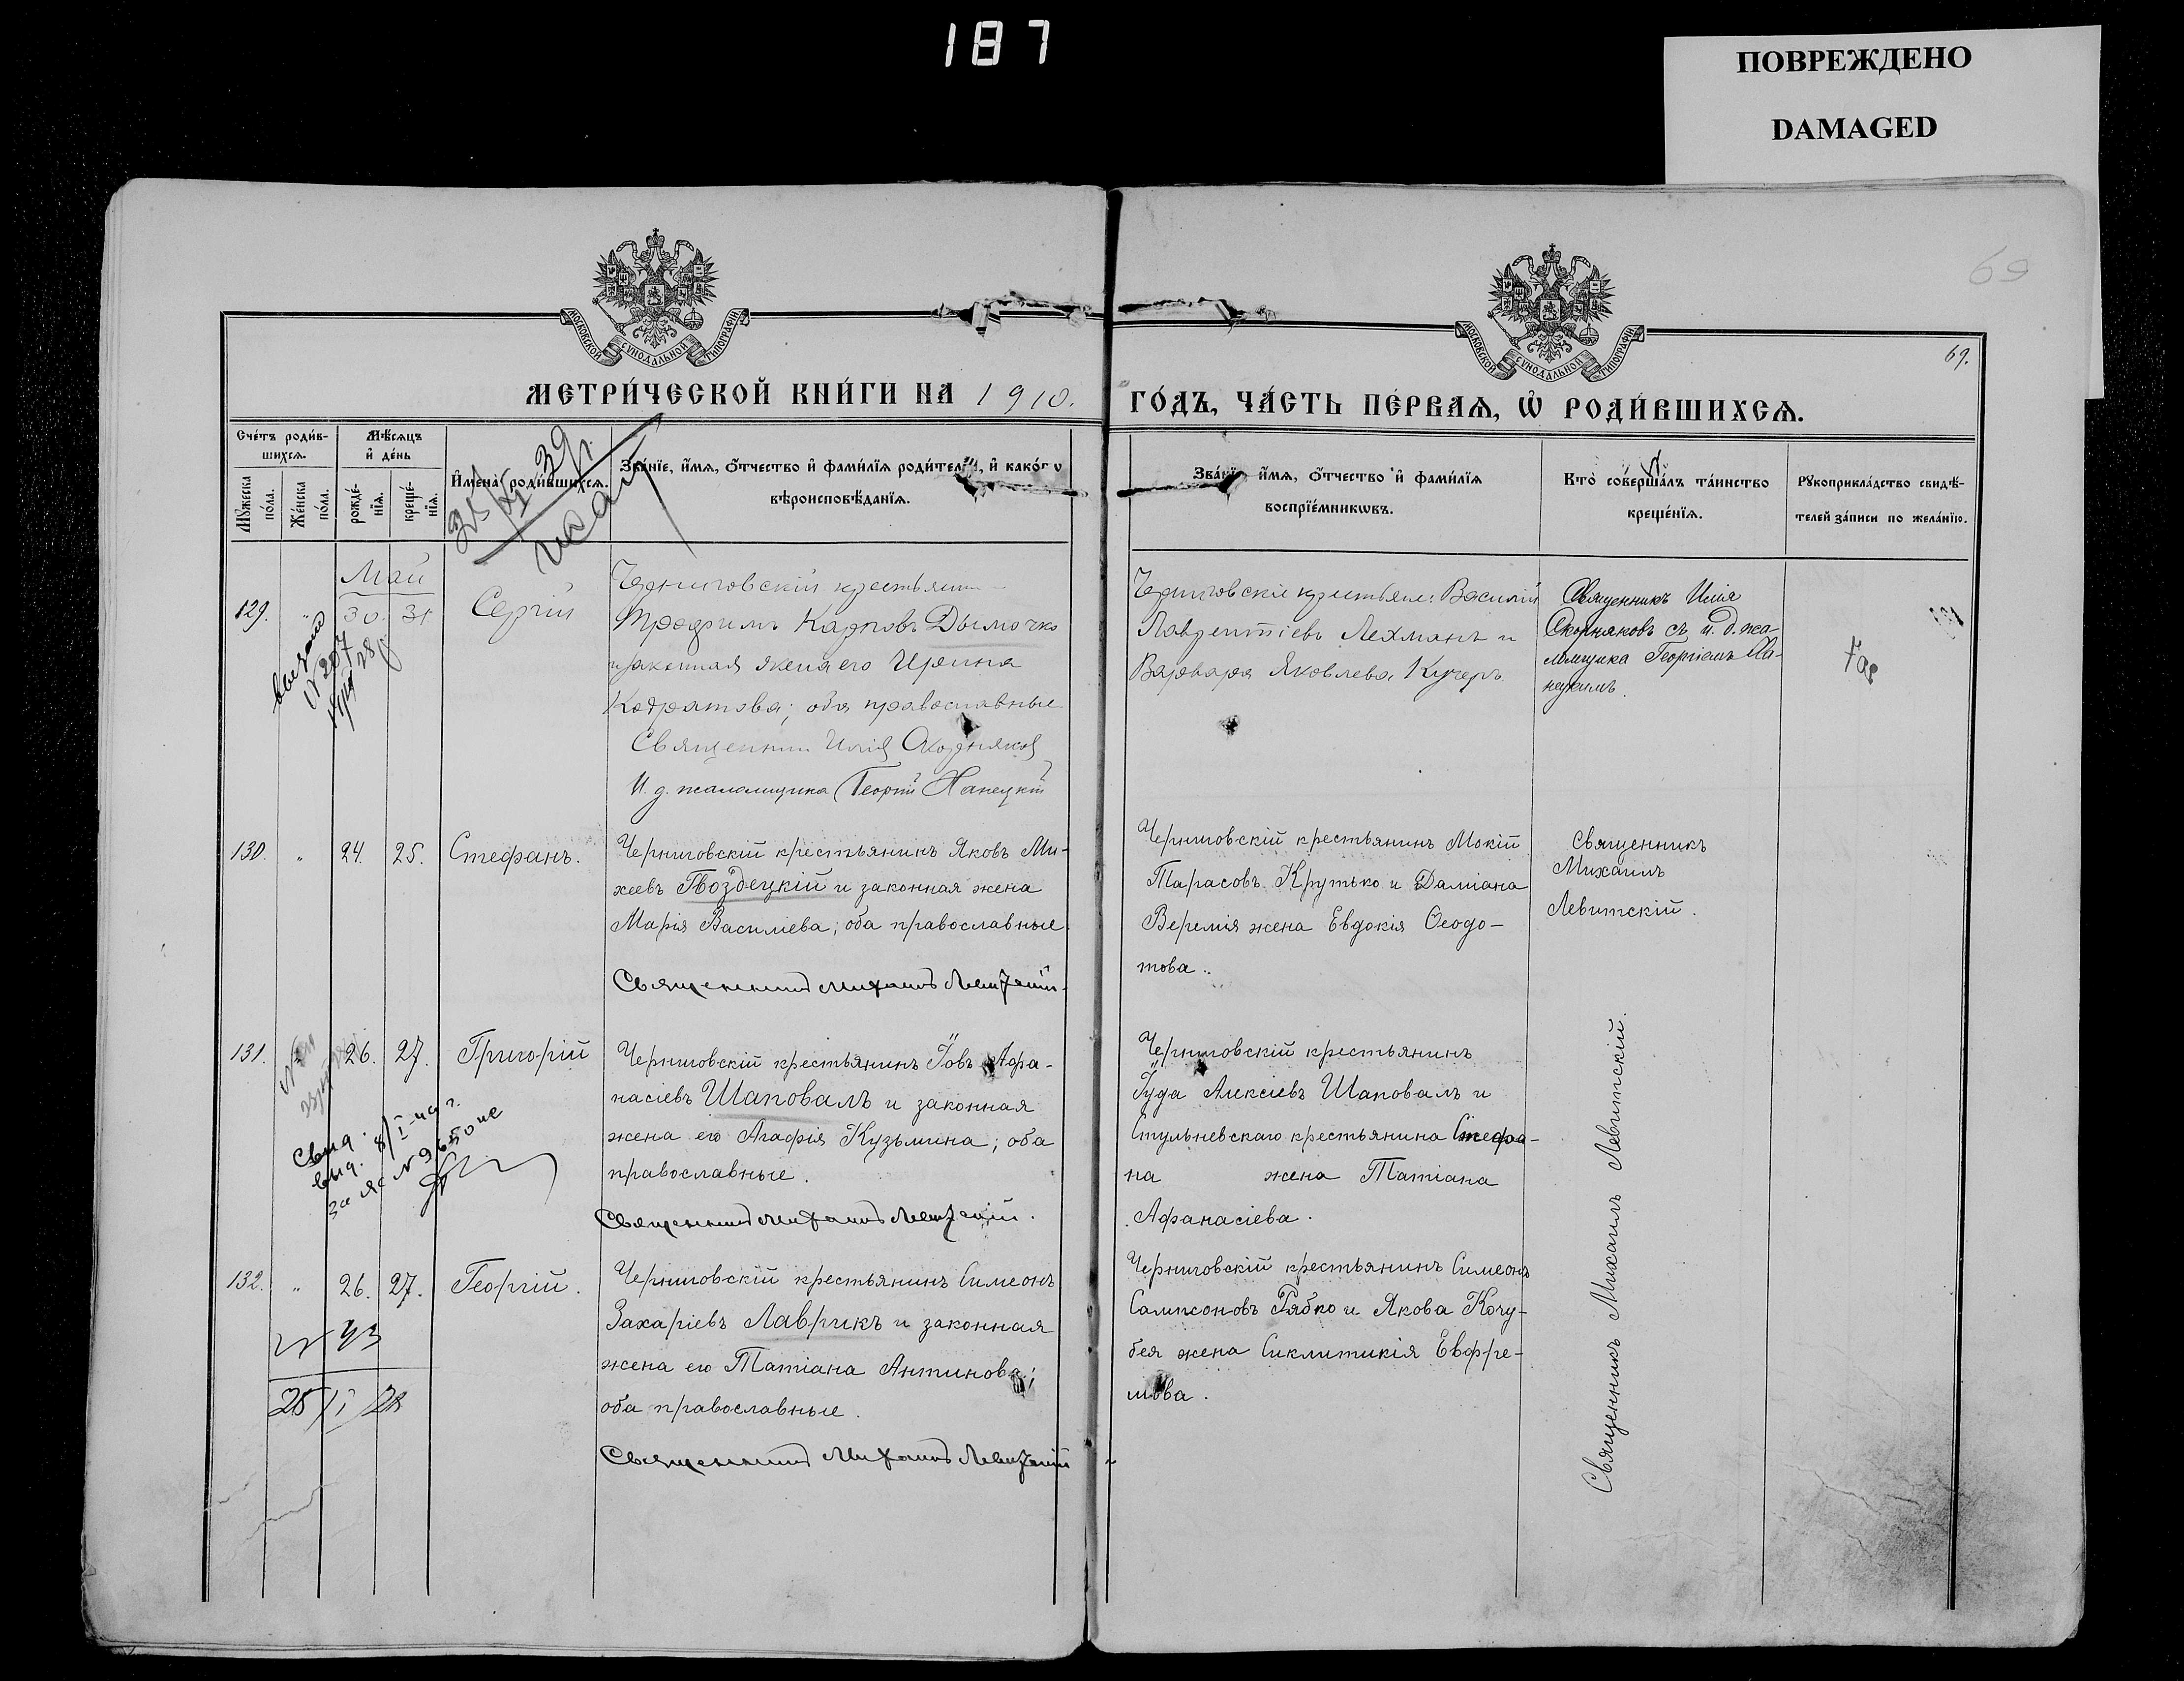 187
ПОВРЕЖДЕНО
DAMAGED
69
МОСКОВСКОЙ СУНОДАЛЬНОЙ ТИПОГРАФІИ
МОСКОВСКОЙ СУНОДАЛЬНОЙ ТИПОГРАФІИ
69.
МЕТРИ́ЧЕСКОЙ КНИ́ГИ НА 1910.
ГО́ДЪ, ЧА́СТЬ ПЕ́РВАѦ, Ѡ҆ РОДИ́ВШИХСѦ.
Сче́тъ роди́в-
шихсѧ.
Мѣ́сѧцъ
и҆ де́нь
Мꙋ́жеска
по́ла.
Же́нска
по́ла.
рожде́-
нїѧ.
креще́-
нїѧ.
И҆мена̀ роди́вшихсѧ.
Зва́нїе, и҆́мѧ, ѻ҆́тчество и҆ фами́лїѧ роди́телей, и҆ како́гѡ
вѣроисповѣ́данїѧ.
Зва́нїе, и҆́мѧ, ѻ҆́тчество и҆ фами́лїѧ
воспрїе́мникѡвъ.
Кто̀ соверша́лъ та́инство
креще́нїѧ.
Рꙋкоприкла́дство свидѣ́-
телей за́писи по жела́нїю.
Май
129. " 30. 31 Сергій
Черниговскій крестьянин
Трофимъ Карповъ Дымочко
и законная жена его Ирина
Кодратова; оба православные
Священник Илія Скорняков
И. д. псаломщика Георгій Ханецкій
Черниговскіе крестьяне: Василій
Лаврентіевъ Лехманъ и
Варвара Яковлева Кучеръ
Священникъ Илія
Скорняковъ съ и. д. пса-
ломщика Георгіемъ Ха-
нецкимъ.
130. " 24. 25. Стефанъ.
Черниговскій крестьянинъ Яковъ Ми-
хеевъ Гвоздецкій и законная жена
Марія Василіева; оба православные
Священникъ Михаилъ Левитскій.
Черниговскій крестьянинъ Мокій
Тарасовъ Крутько и Даміана
Веремія жена Евдокія Ѳеодо-
това.
Священникъ
Михаилъ
Левитскій.
131. 26. 27. Григорій
Свид.
выд. 8/I
Черниговскій крестьянинъ Іовъ Афа-
насіевъ Шаповалъ и законная
жена его Агафія Кузьмина; оба
православные.
Священникъ Михаилъ Левитскій.
Черниговскій крестьянинъ
Іуда Алексіевъ Шаповалъ и
Стульневскаго крестьянина Стефа-
на жена Татіана
Афанасіева.
132. " 26. 27. Георгій.
N 43
28/I 28
Черниговскій крестьянинъ Симеонъ
Захаріевъ Лаврикъ и законная
жена его Татіана Антинова;
оба православные.
Священникъ Михаилъ Левитскій
Черниговскій крестьянинъ Симеонъ
Сампсоновъ Рябко и Якова Кочу-
бея жена Сиклитикія Евфре-
мова.
Священникъ Михаилъ Левитскій.